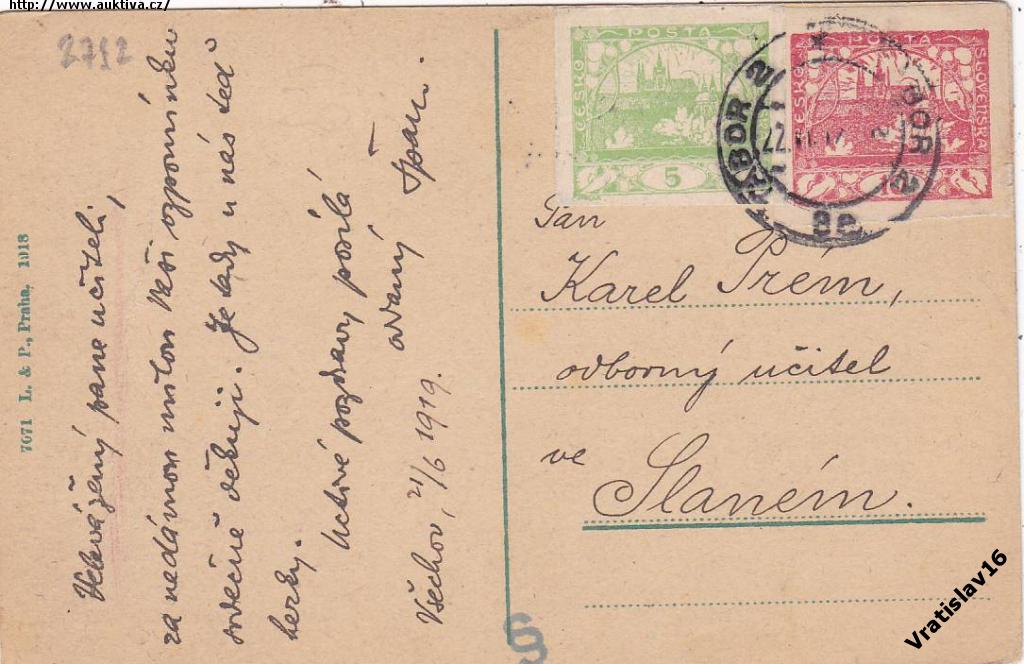 http://www.auktiva.cz/
2712
Velevážený pane učiteli,
za nedávnou milou Vaši vzpomínku
srdečně děkuji. Je tady u nás teď
hezky.
Uctivé pozdravy posílá
oddaný
Všechov, 21/6 1919.
7071 L. & P., Praha, 1918
POŠTA
ČESKO
5
POŠTA
ČESKO
SLOVENSKÁ
TÁBOR 2
TÁBOR 2
8e
Pan
Karel Prém,
odborný učitel
ve
Slaném.
Vratislav16